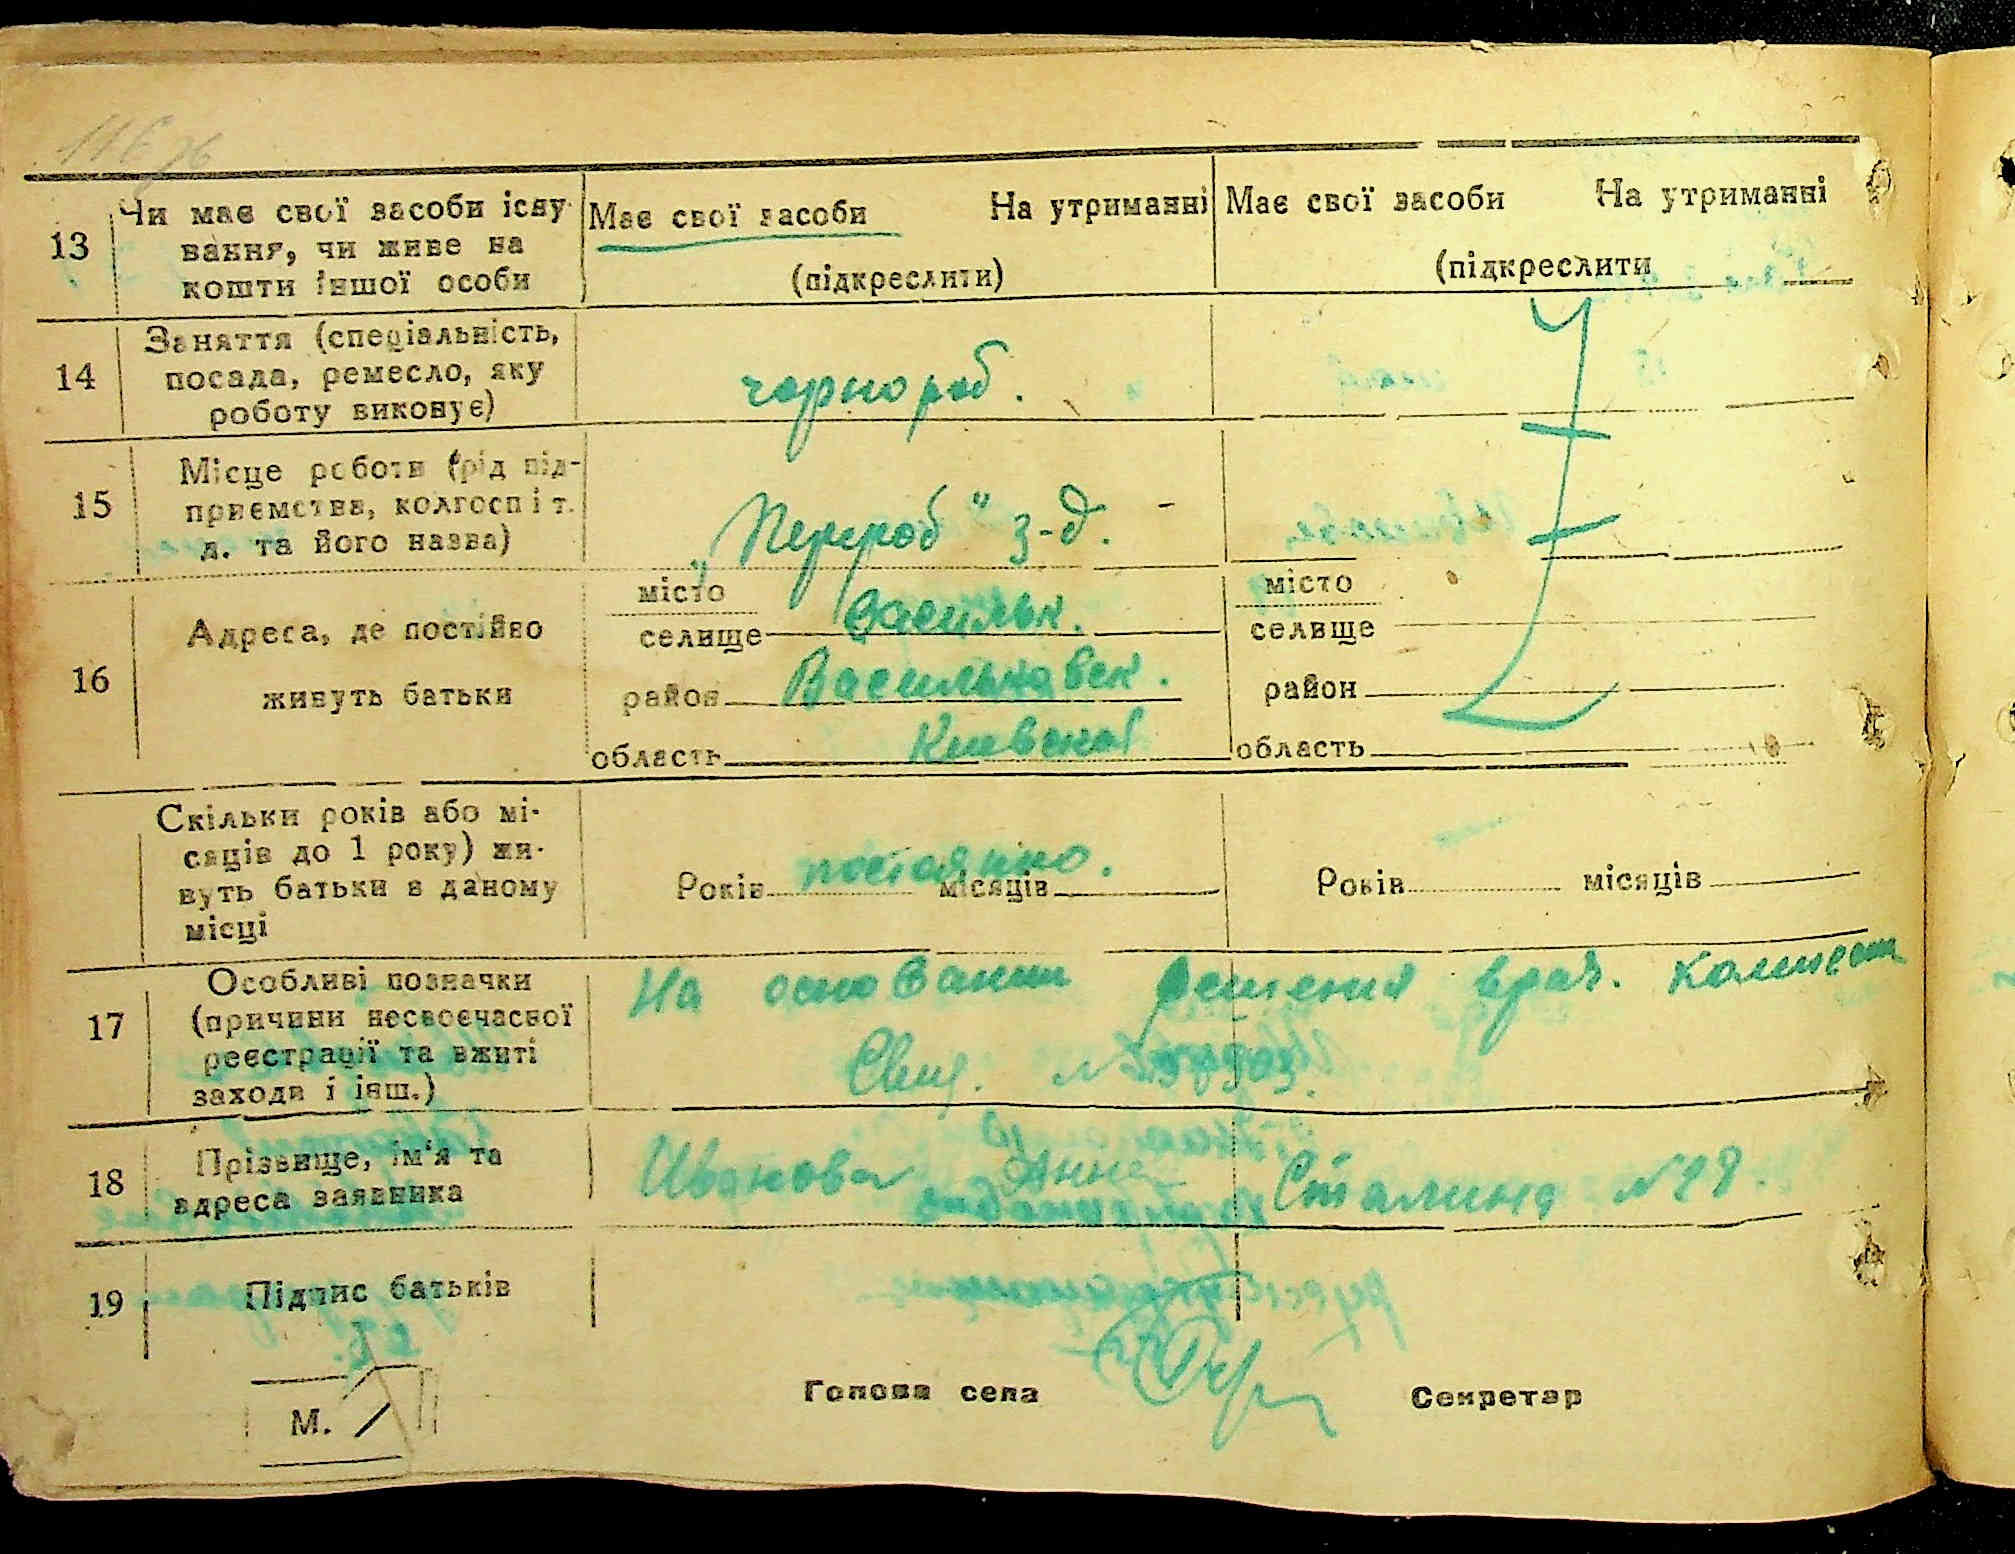 13
Чи має свої засоби існу
вання, чи живе на
кошти іншої особи
Має свої засоби На утриманні
(підкреслити)
Має свої засоби На утриманні
(підкреслити
14
Заняття (спеціальність,
посада, ремесло, яку
роботу виконує)
чорнораб.
15
Місце роботи (рід під-
приємства, колгосп і т.
д. та його назва)
„Перероб" з-д. -
16
Адреса, де постійно
живуть батьки
місто
селище Васильк.
район Васильковск.
область Киевской
місто
селище
район
область
Скільки років або мі-
сяців до 1 року) жи-
вуть батьки в даному
місці
Років постоянно. місяців
Років місяців
17
Особливі позначки
(причини несвоєчасної
реєстрації та вжиті
заходи і інш.)
На основании решения врач. комисси
Свид. №
18
Прізвище, ім'я та
адреса заявника
Иванова Анна Сталина №
19
Підпис батьків
М.
Голова села Секретар